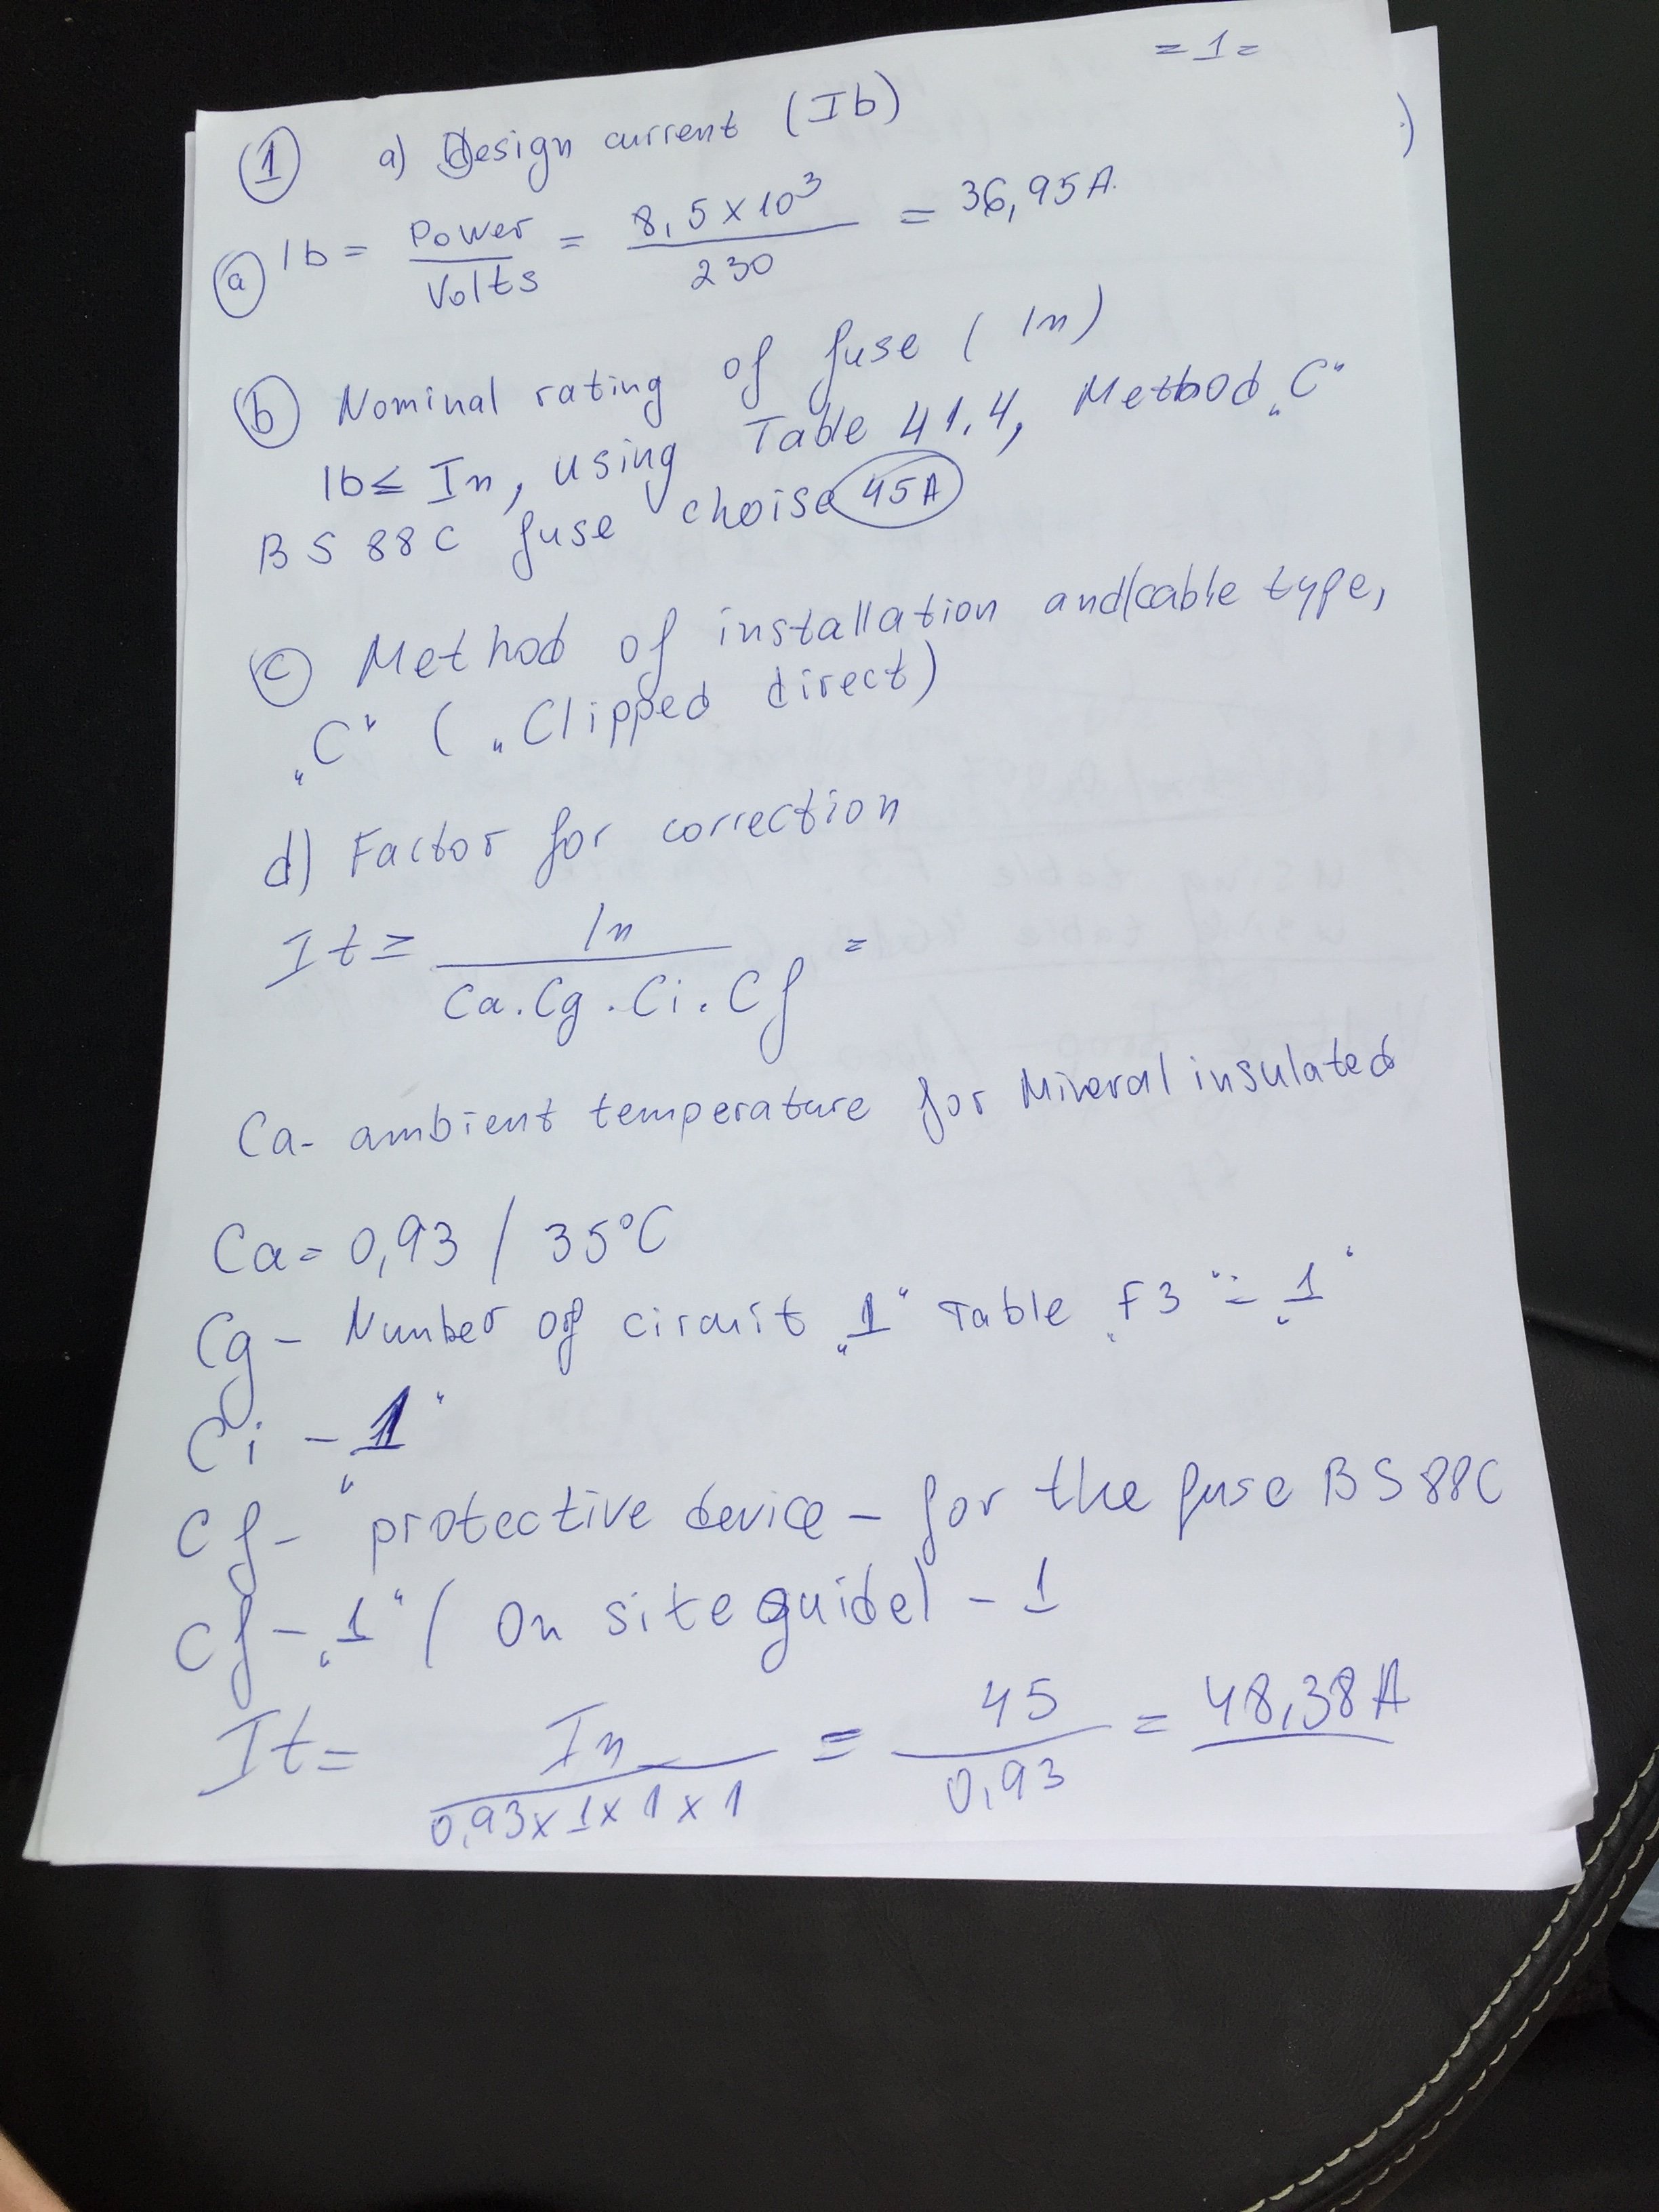 = 1 =
① a) Design current (Ib)
ⓐ Ib = Power / Volts = 8,5 x 10³ / 230 = 36,95A.
ⓑ Nominal rating of fuse ( In)
Ib ≤ In, using Table 41.4, Method „C“
BS 88C fuse choise 45A
ⓒ Method of installation and/cable type,
„C“ ( „Clipped direct)
d) Factor for correction
It ≥ In / Ca.Cg.Ci.Cf =
Ca- ambient temperature for Mineral insulated
Ca = 0,93 / 35°C
Cg - Number of circuit „1“ Table „F3“ = „1“
Ci - „1“
Cf - protective device - for the fuse BS 88C
Cf - „1“ ( On site guide) - 1
It = In / 0,93 x 1 x 1 x 1 = 45 / 0,93 = 48,38A